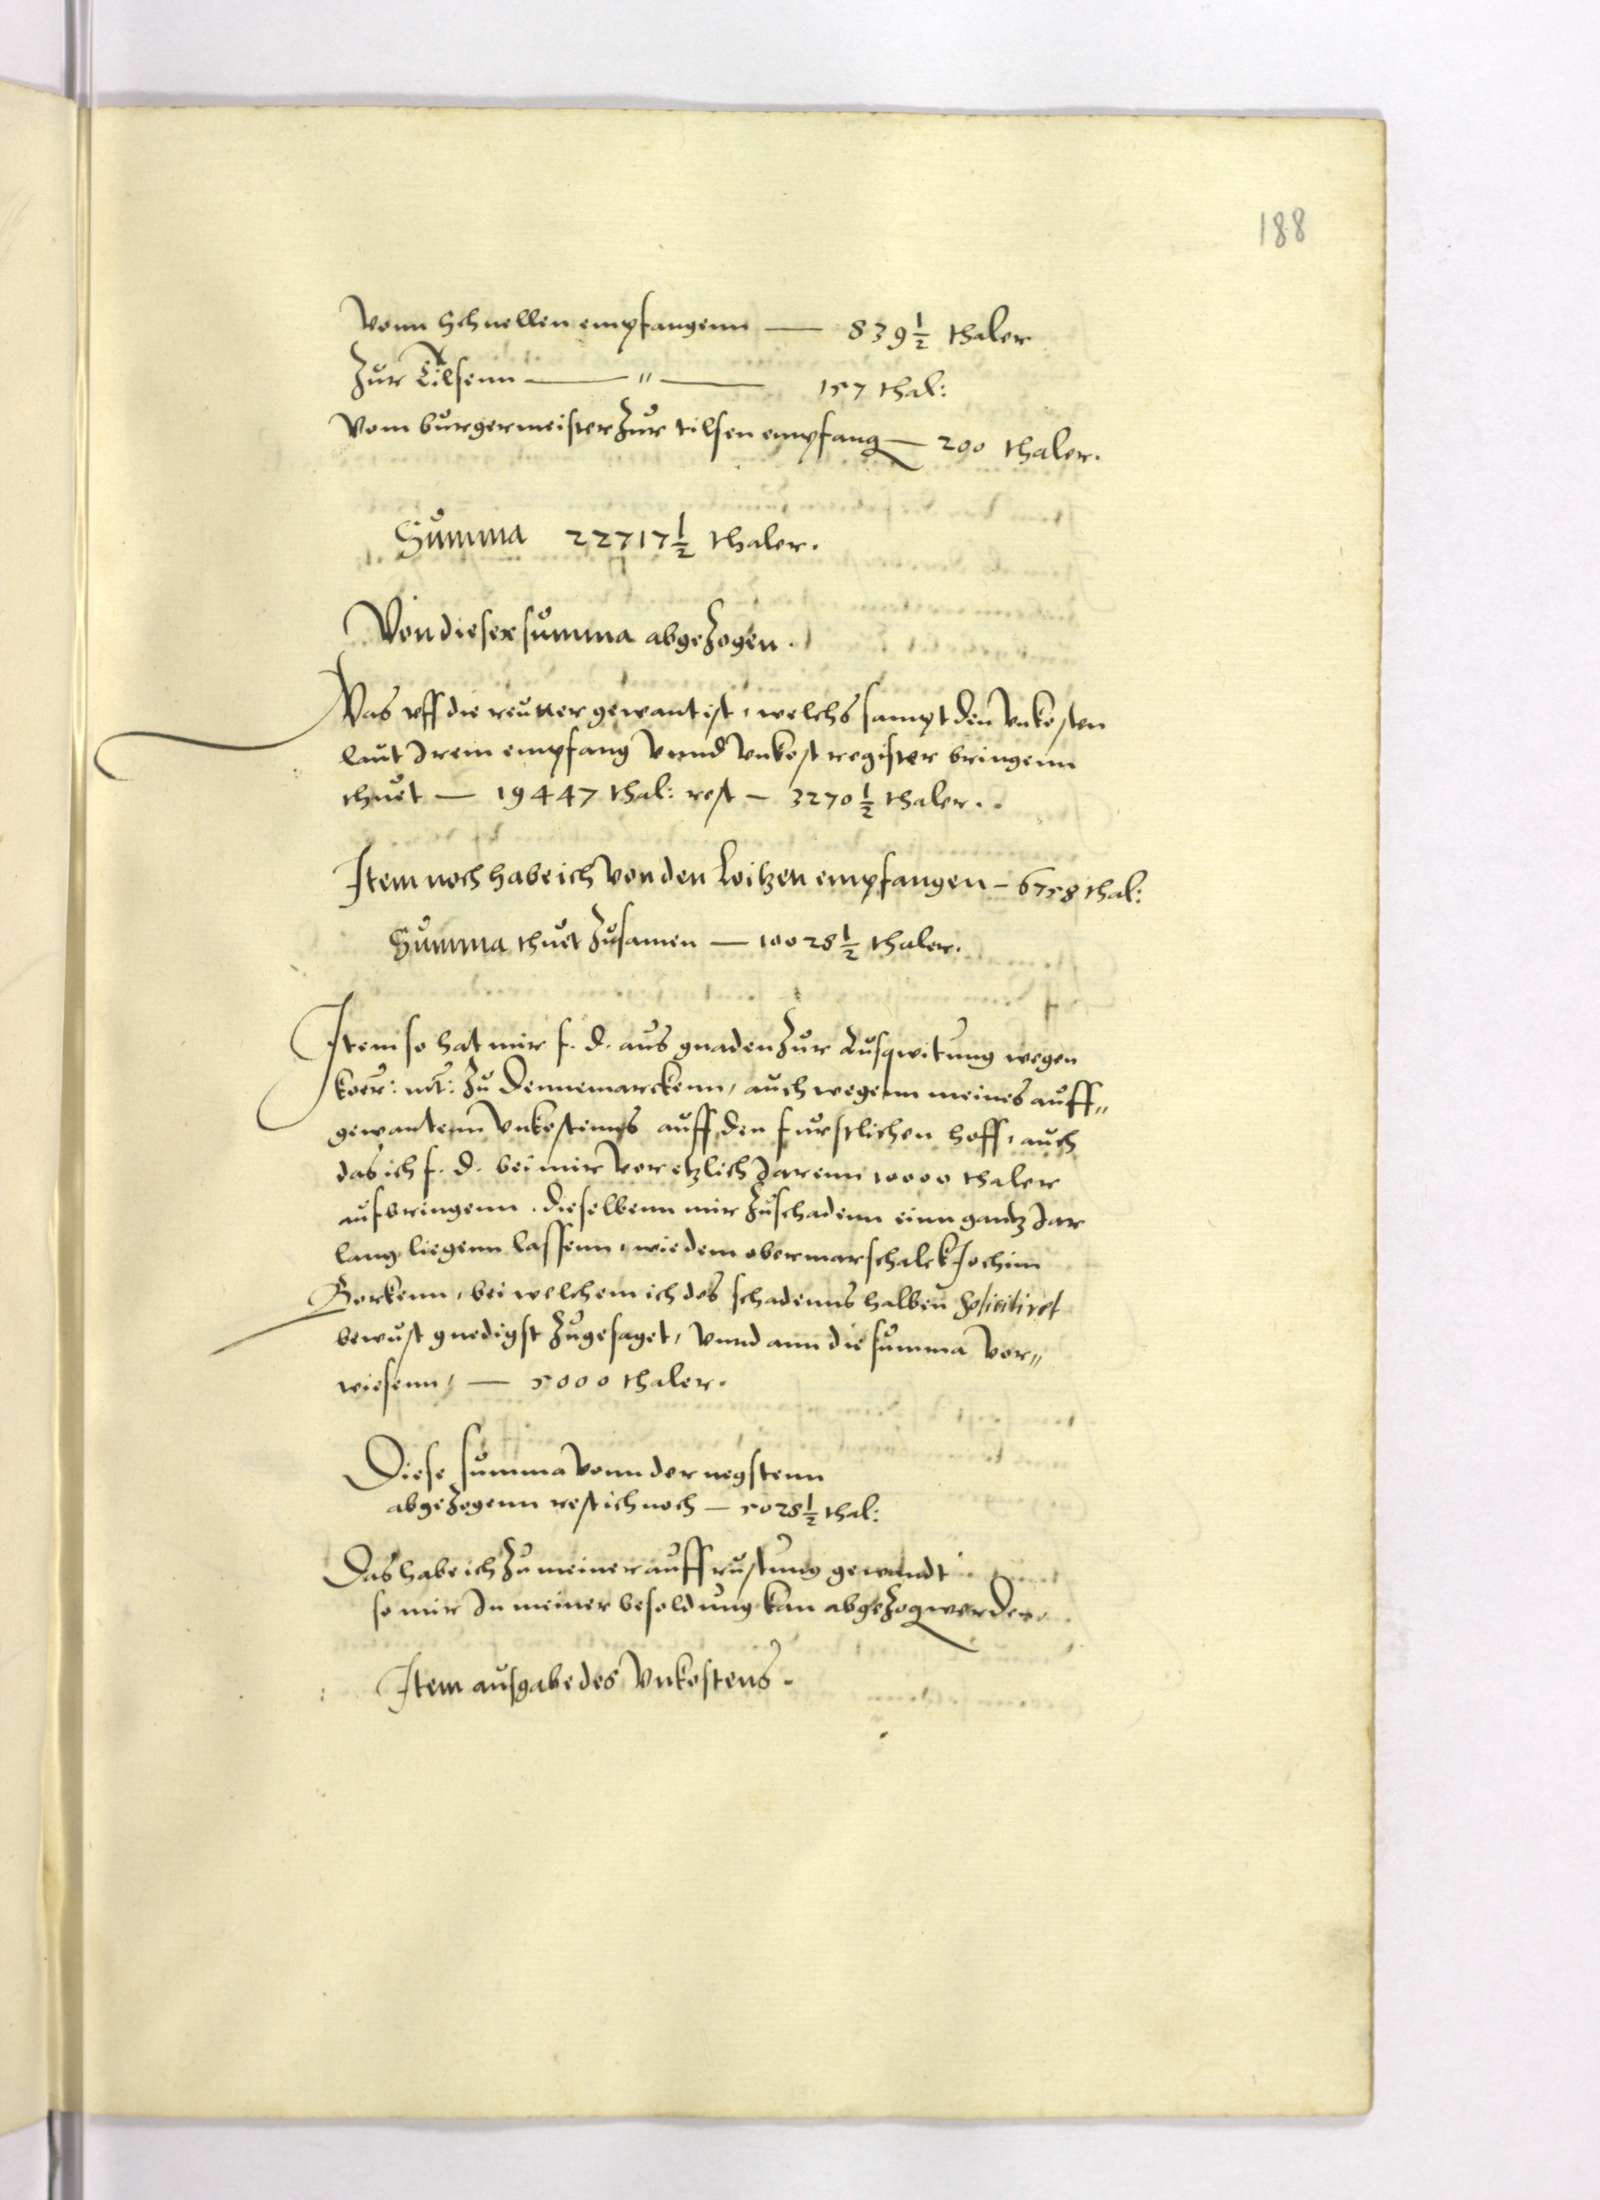 188
Vonn Schnellen empfangenn — 839 1/2 thaler
Zur Tilsenn — " — 157 thal:
Vom burgermeister zur tilsen empfang — 200 thaler.
Summa 22717 1/2 thaler.
Von dieser summa abgezogen.
Was vff die reutter gewant ist, welchs sampt den Vnkosten
laut Irem empfang Vnnd Vnkost register bringenn
thuet — 19447 thal: rest — 3270 1/2 thaler.
Item noch habe ich Von den Loitzen empfangen — 6758 thal:
Summa thuet zusamen — 10028 1/2 thaler.
Item so hat mir f. d. aus gnaden zur Ausqwitung wegen
koer: mt: zu Dennemarckenn, auch wegenn meines auff„
gewantenn Vnkostenns auff den furstlichen hoff, auch
das ich f. d. bei mir Vor etzlich Jarenn 10000 thaler
aufbringenn. dieselbenn mir zuschadenn einn gantz Jar
lang liegenn lassenn, wie dem obermarschalck Jochim
Borkenn, bei welchem ich des schadenns halben soliciiret
bewust gnedigst zugesaget, Vnnd ann die summa Vor„
wiesenn, — 5000 thaler.
Diese summa Vonn der negstenn
abgezogenn rest ich noch — 5028 1/2 thal:
Das habe ich zu meiner auffrustung gewandt
so mir In meiner besoldung kan abgezog werdenn
Item ausgabe des Vnkostens.